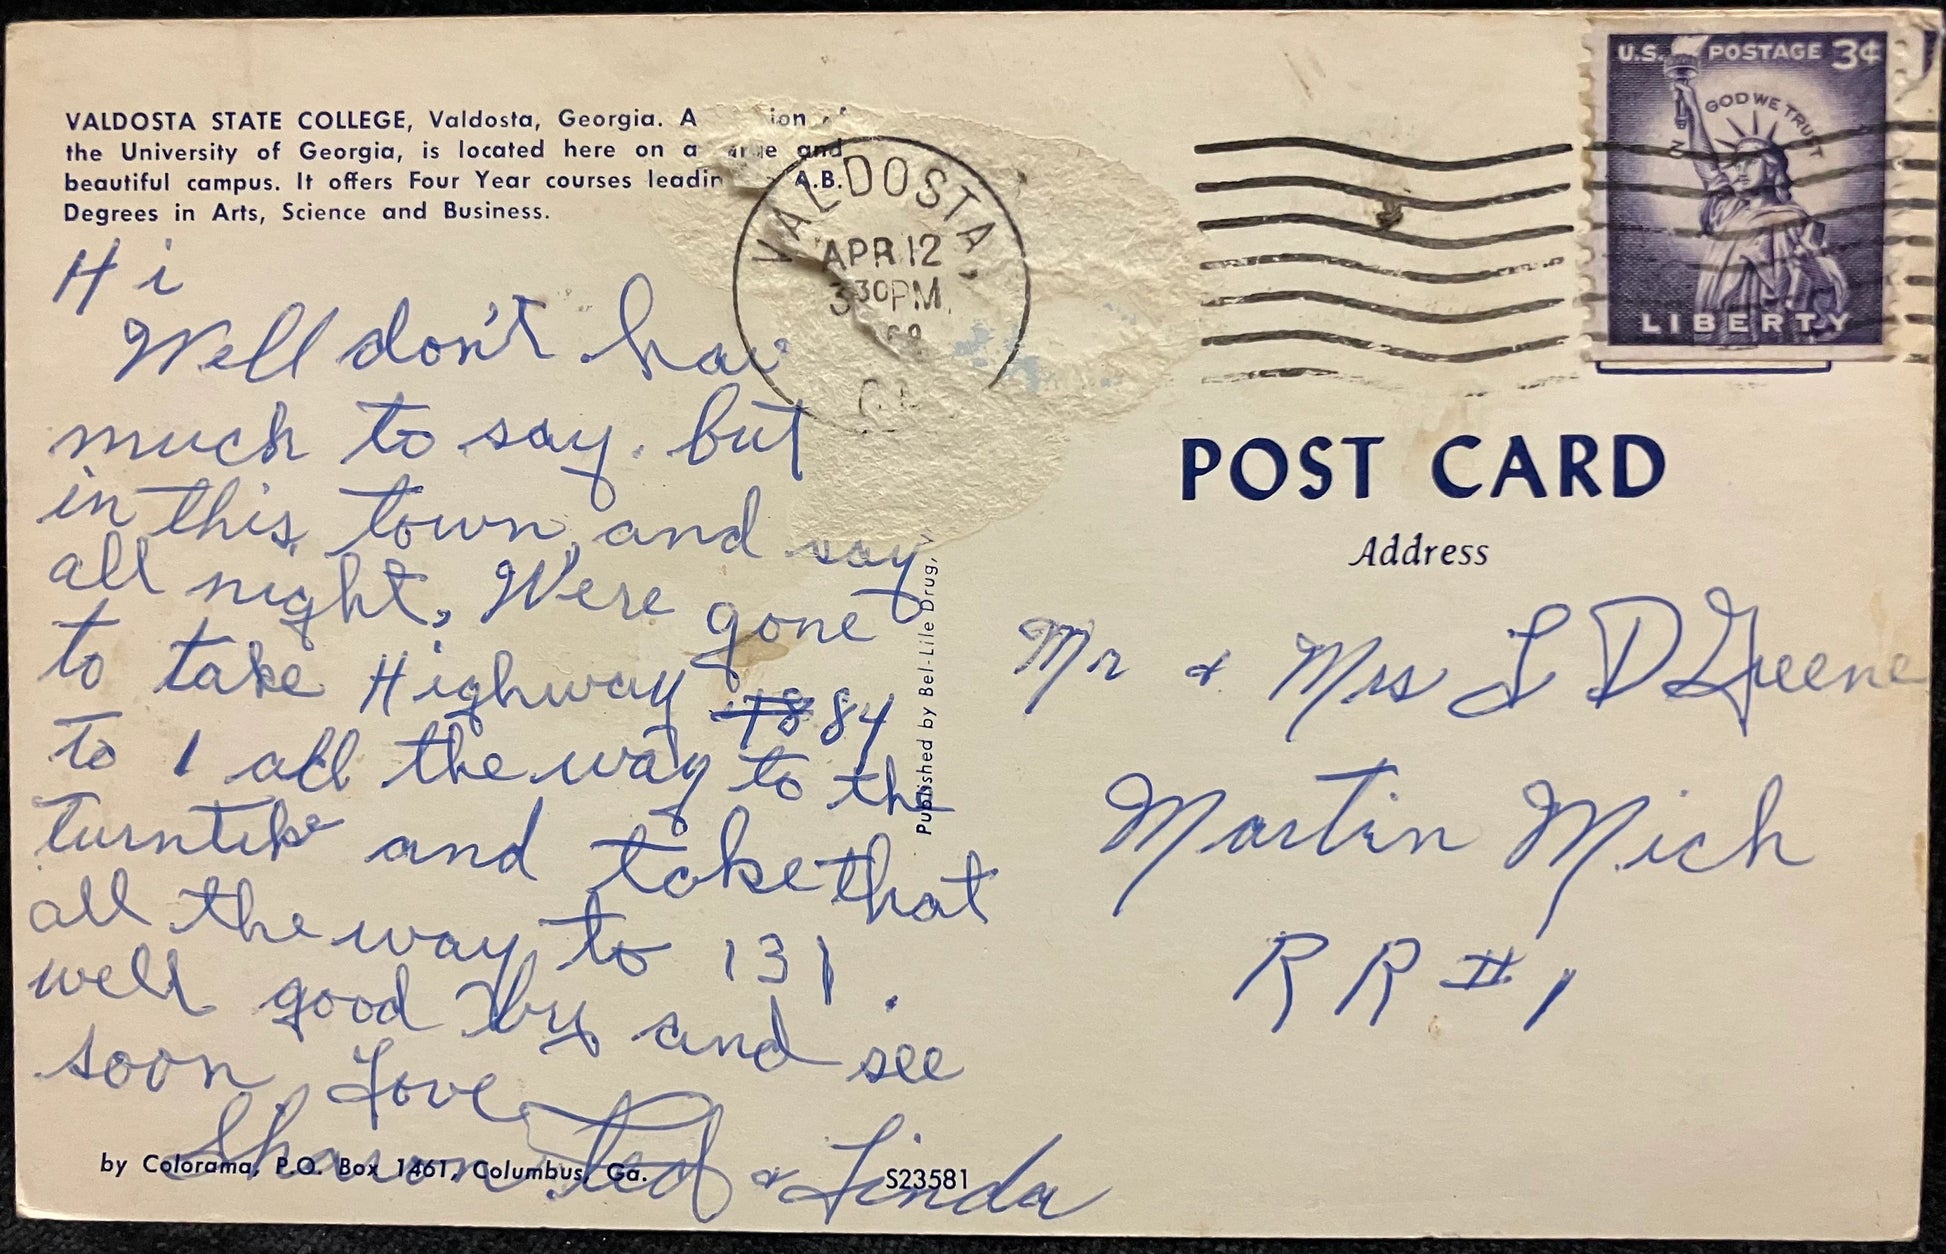 VALDOSTA STATE COLLEGE, Valdosta, Georgia. A
the University of Georgia, is located here on a and
beautiful campus. It offers Four Year courses A.B.
Degrees in Arts, Science and Business.
Hi
Well don't
much to say. but
in this town, and say
all night, We're gone
to take Highway 78 84
to 1 all the way to the
turntike and take that
all the way to 131.
well good by and see
soon Love
Shawn Ted & Linda
by Colorama, P.O. Box 1461, Columbus, Ga.
S23581
Published by Bel-Lile Drug,
VALDOSTA,
APR 12
3 30PM
U.S. POSTAGE 3¢
IN GOD WE TRUST
LIBERTY
POST CARD
Address
Mr & Mrs L D Greene
Martin Mich
R R #1